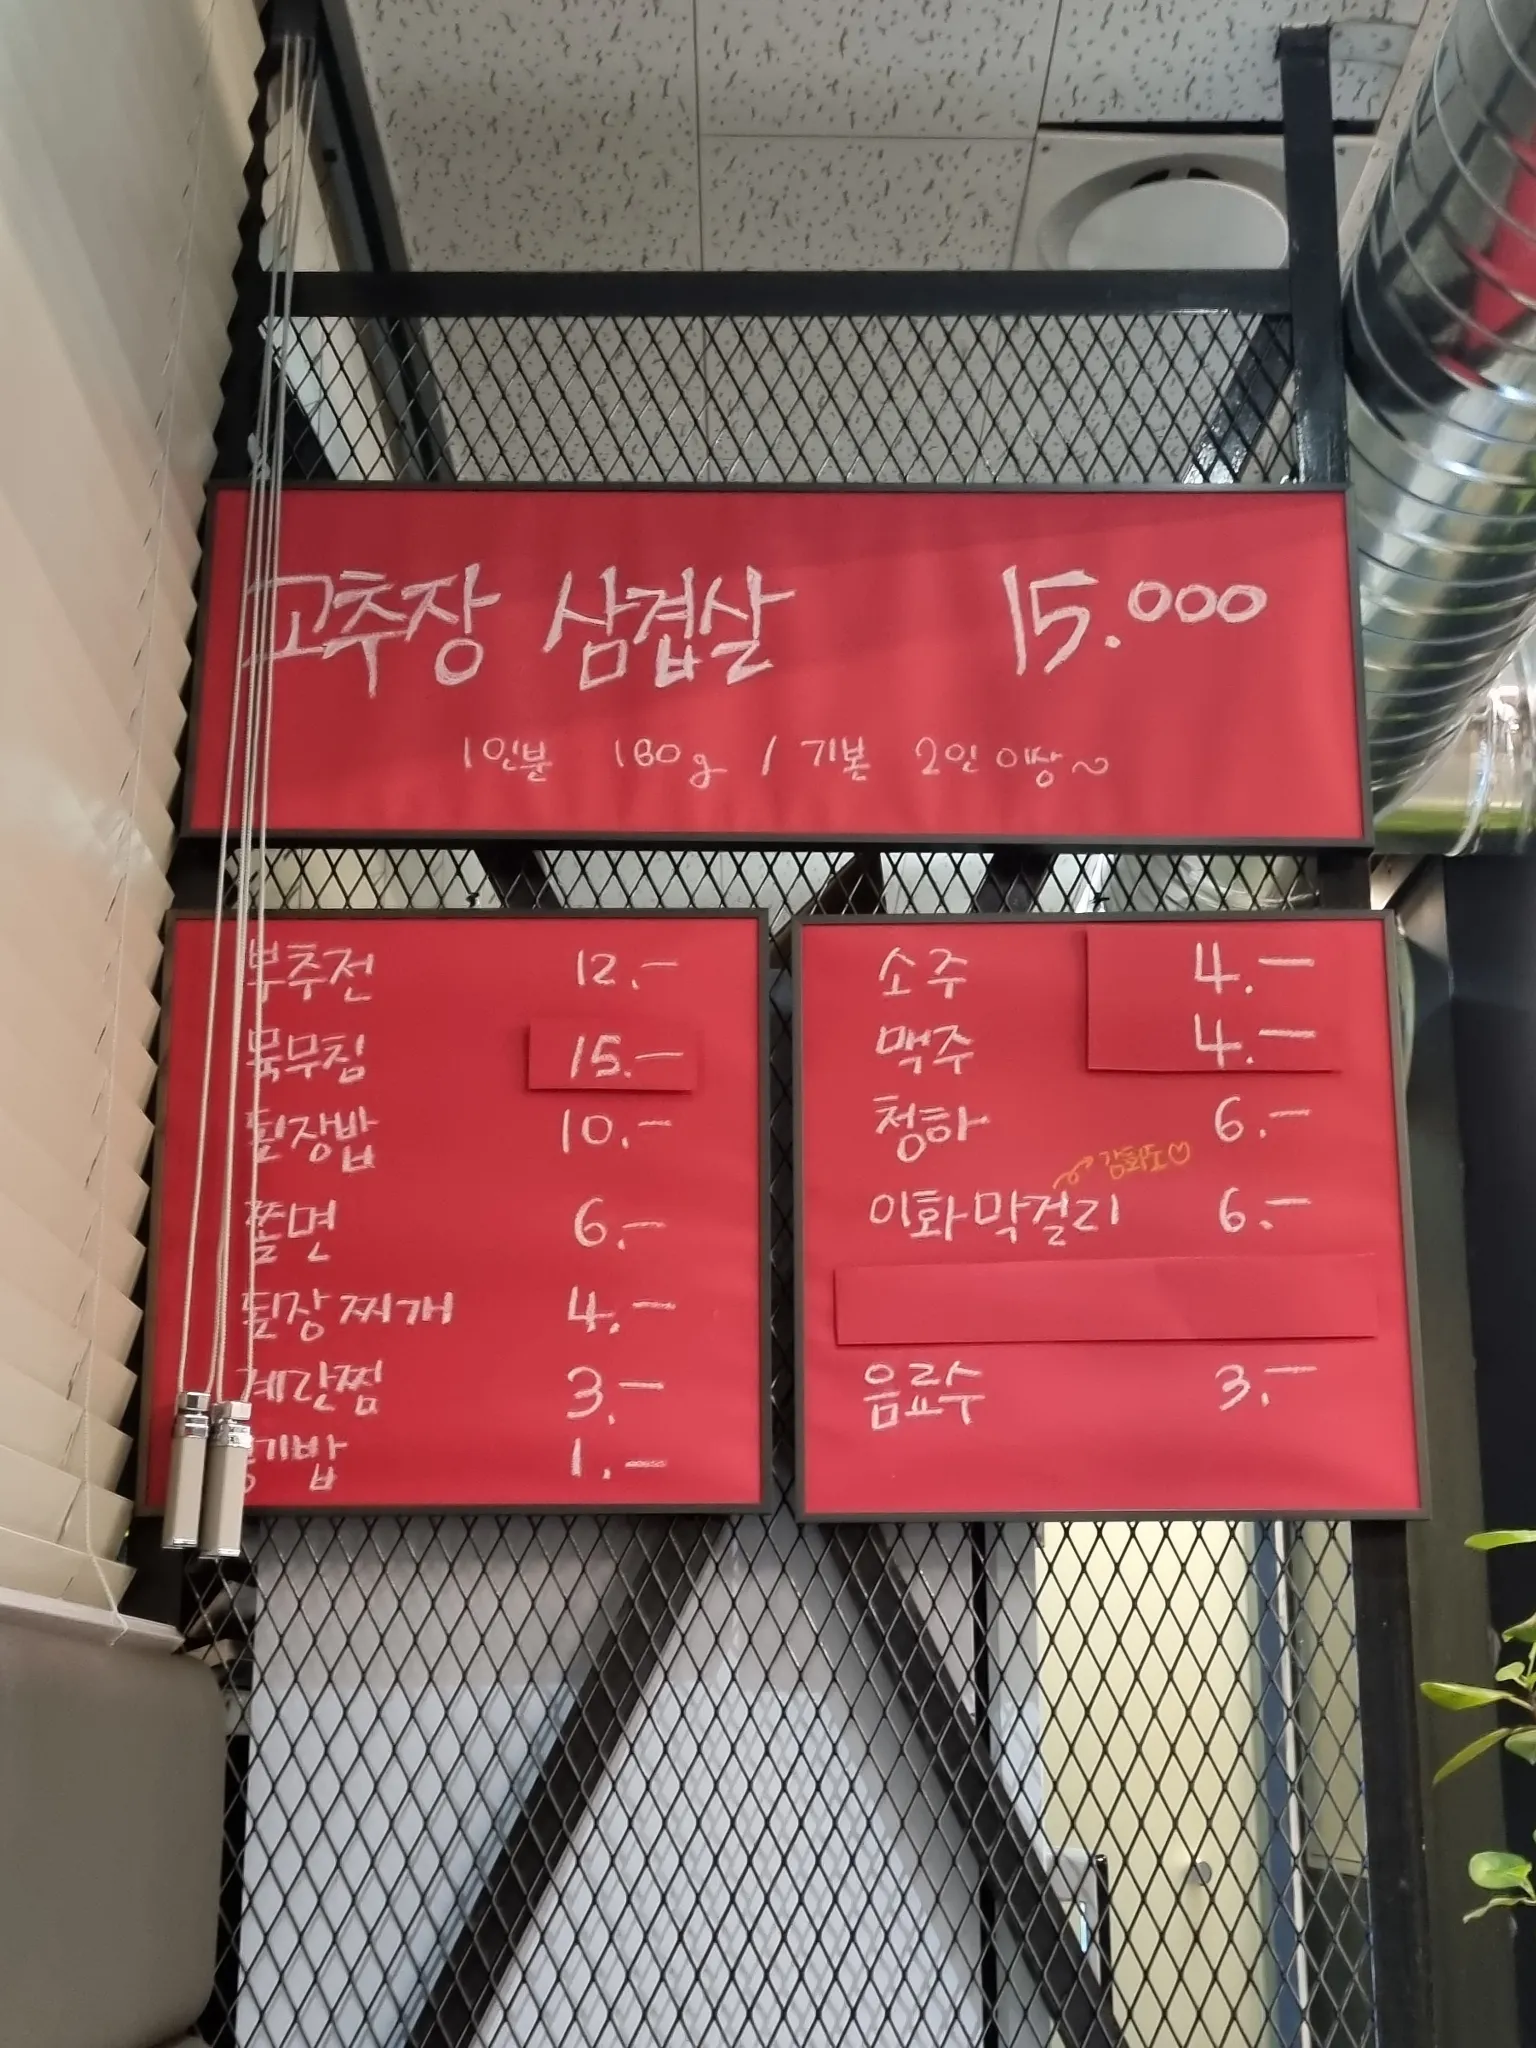 고추장 삼겹살 15.000
1인분 180g / 기본 2인 이상~
부추전 12.-
묵무침 15.-
된장밥 10.-
쫄면 6.-
된장찌개 4.-
계란찜 3.-
공기밥 1.-
소주 4.-
맥주 4.-
청하 6.-
감화도♡
이화막걸리 6.-
음료수 3.-